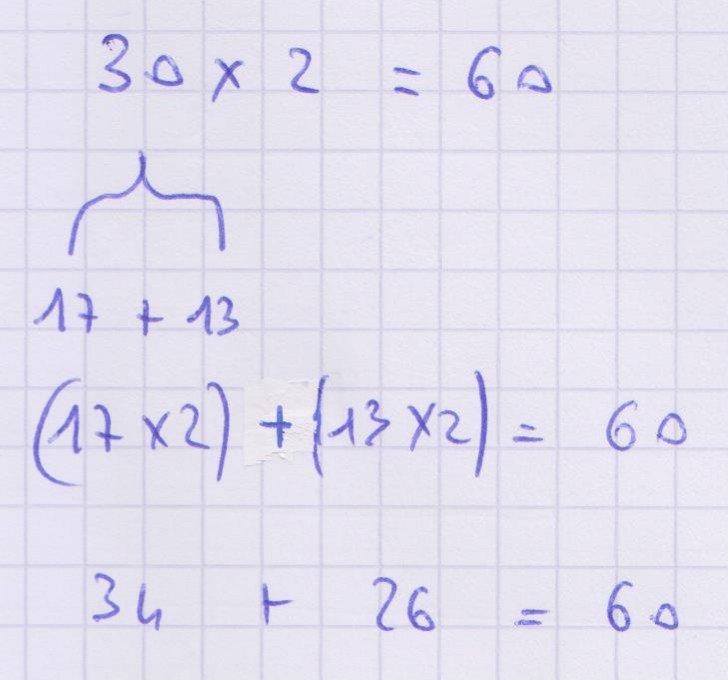 30 × 2 = 60
17 + 13
(17 × 2) + (13 × 2) = 60
34 + 26 = 60